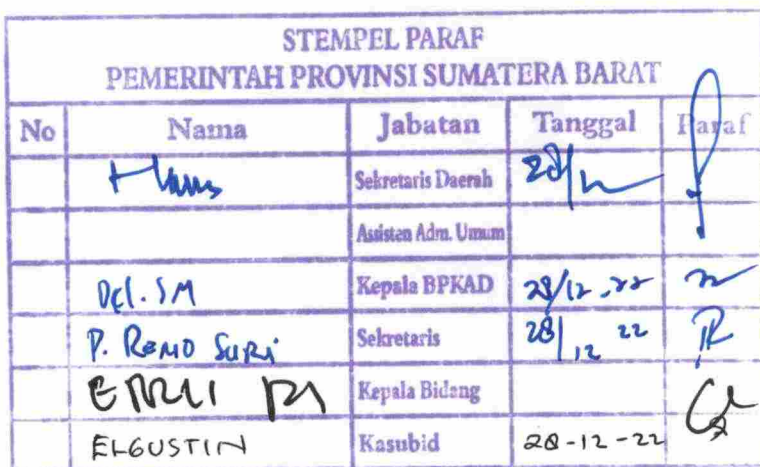 STEMPEL PARAF
PEMERINTAH PROVINSI SUMATERA BARAT
No Nama Jabatan Tanggal Paraf
Sekretaris Daerah 28/12
Asisten Adm. Umum
Del. SM Kepala BPKAD 28/12.22
P. Remo Suri Sekretaris 28/12 22
Kepala Bidang
ELGUSTIN Kasubid 28-12-22